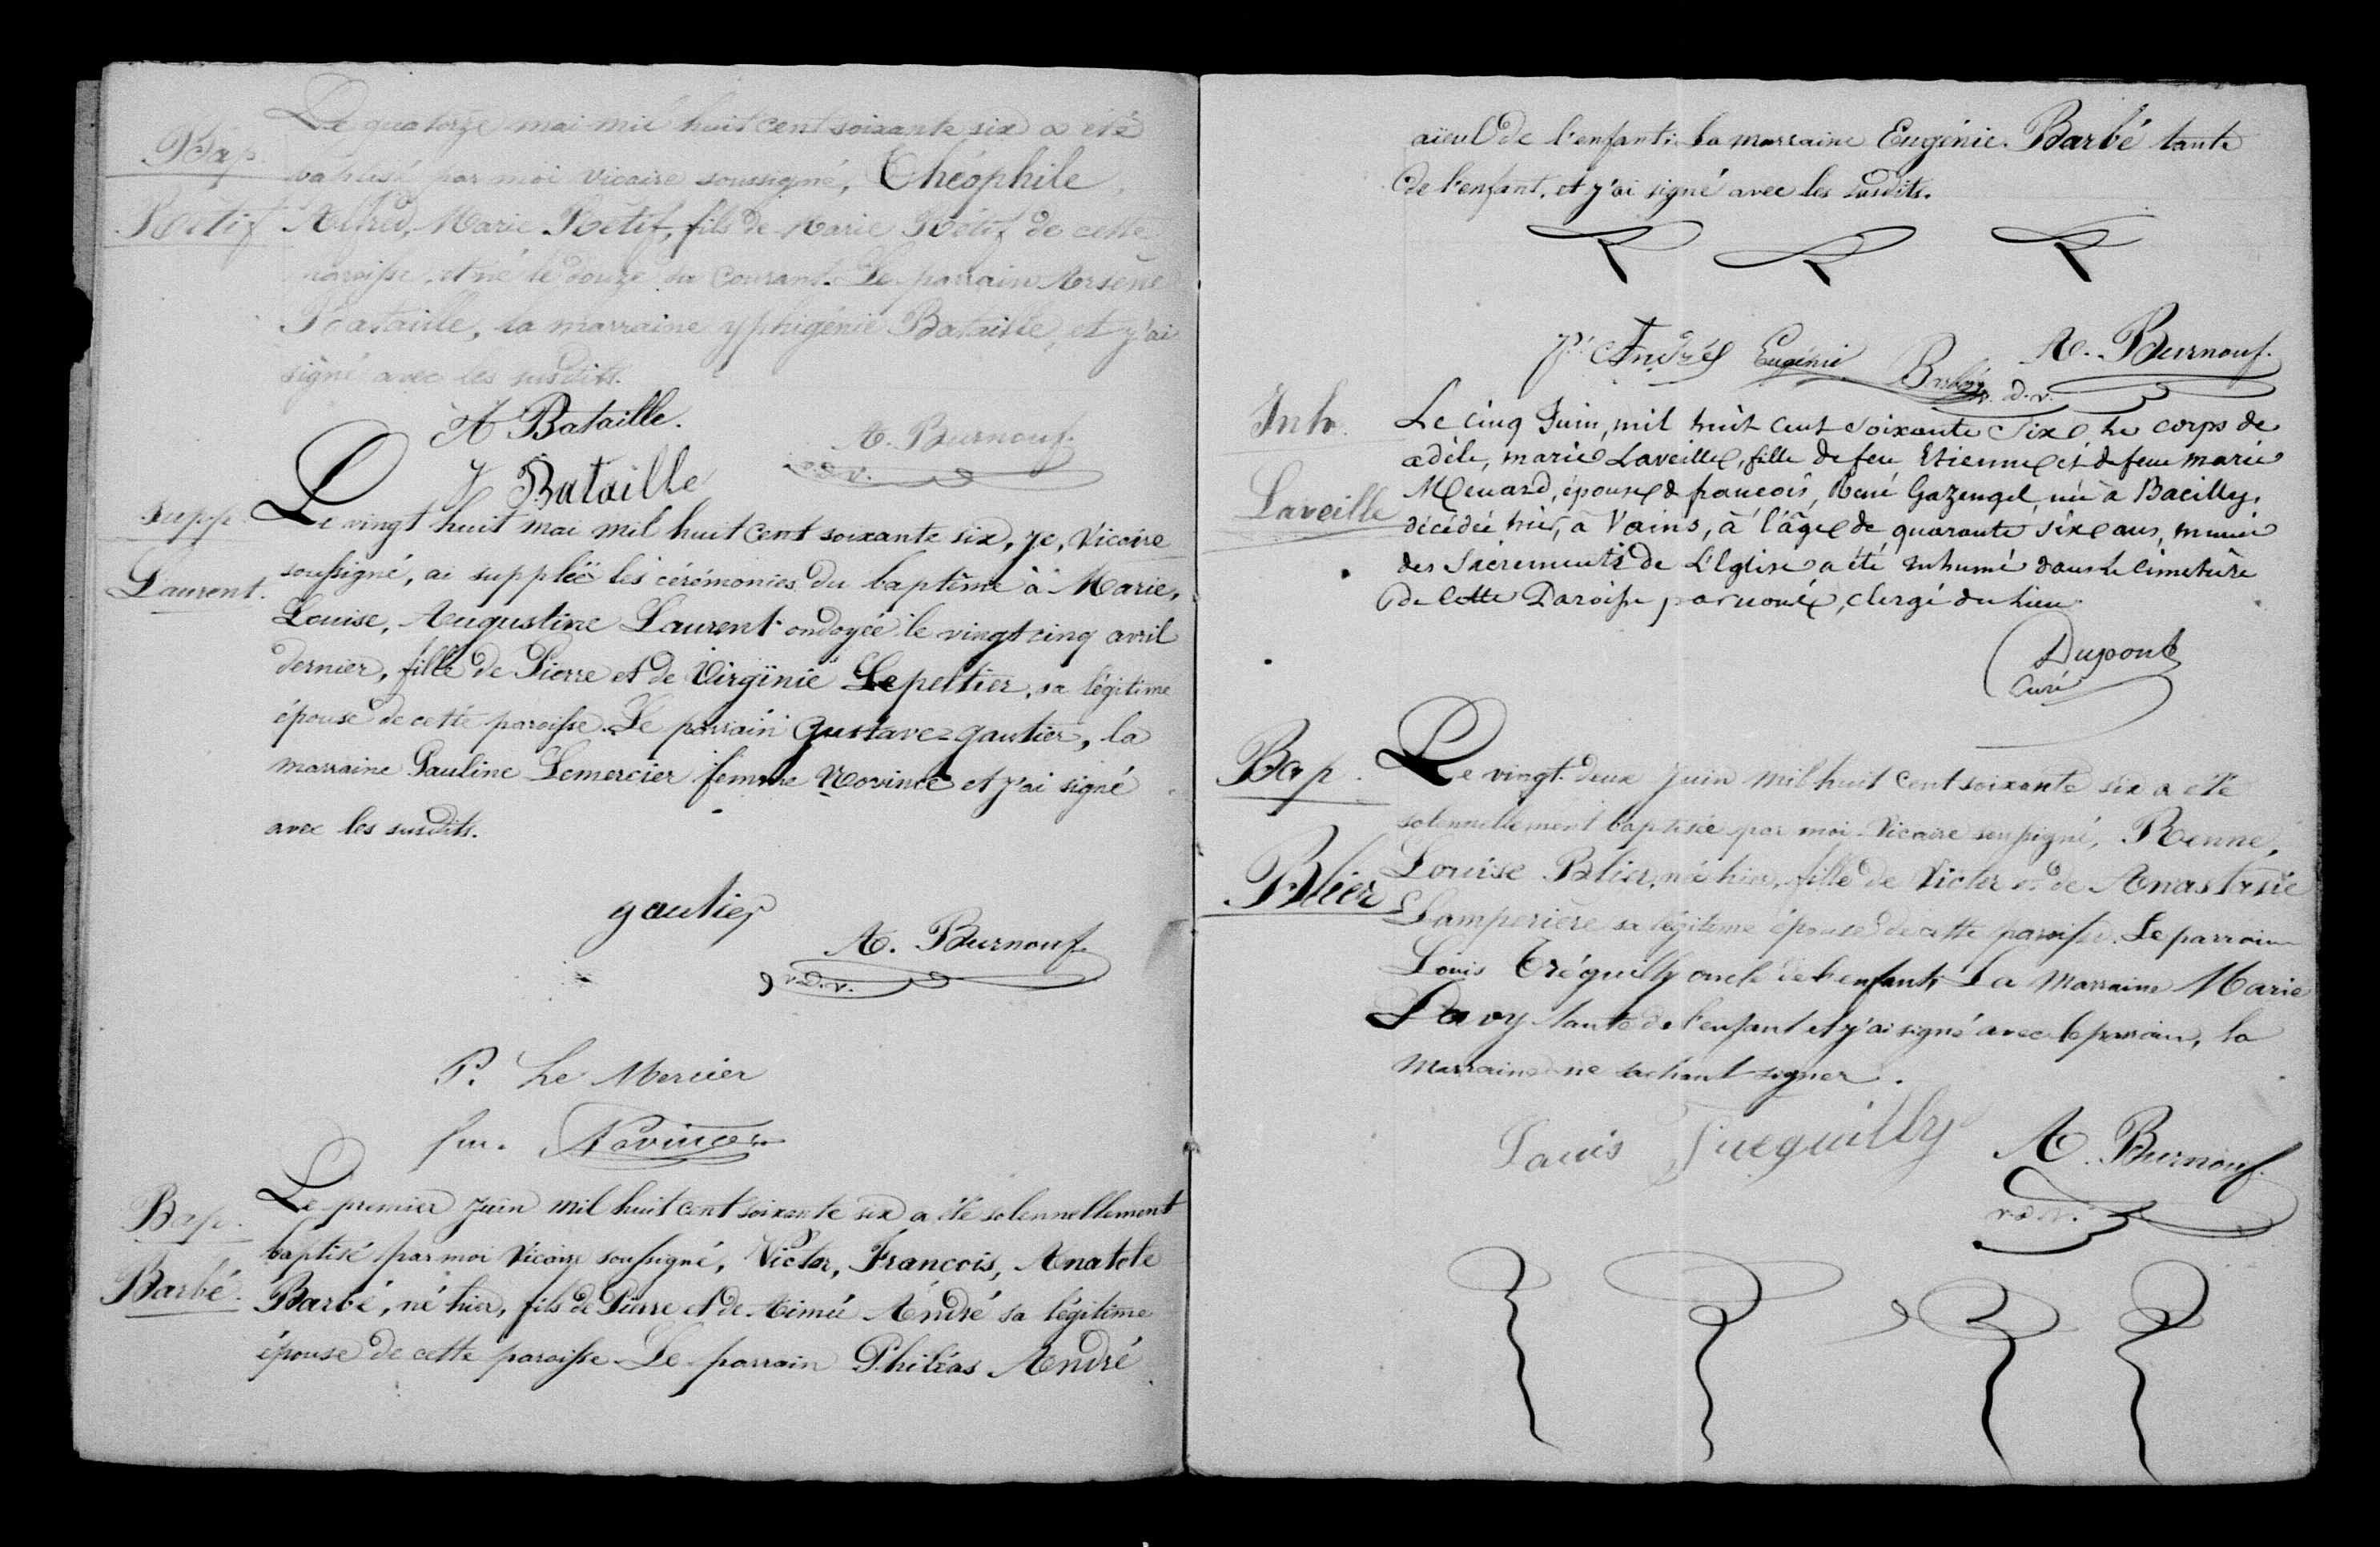 Le quatorze mai mil huit cent soixante six a été
Bap. baptisé par moi vicaire soussigné, Théophile,
Rétif Alfred, Marie Rétif, fils de Marie Rétif de cette
paroisse et né le douze du courant. Le parrain Arsène
Bataille, la marraine yphigénie Bataille, et j'ai
signé avec les susdits.
A Bataille.
A. Burnouf.
v.d.v.
Y Bataille
Supp. Le vingt huit mai mil huit cent soixante six, je, Vicaire
Laurent. soussigné, ai suppléé les cérémonies du baptême à Marie,
Louise, Augustine Laurent ondoyée le vingt cinq avril
dernier, fille de Pierre et de Virginie Lepeltier, sa légitime
épouse de cette paroisse. Le parrain Gustave gautier, la
marraine Pauline Lemercier femme Novince et j'ai signé
avec les susdits.
gautier
A. Burnouf
v.d.v.
P. Le Mercier
fm. Novince
Bap. Le premier juin mil huit cent soixante six a été solennellement
baptisé par moi Vicaire soussigné, Victor, François, Anatole
Barbé. Barbé, né hier, fils de Pierre et de Aimée André sa légitime
épouse de cette paroisse. Le parrain Philéas André
aïeul de l'enfant; la marraine Eugénie Barbé tante
de l'enfant, et j'ai signé avec les susdits.
André Eugénie Barbé A. Burnouf.
v.d.v.
Inh. Le cinq Juin, mil huit cent soixante six le corps de
adèle, marie Laveille, fille de feu Etienne et de feue marie
Laveille Menard, épouse de françois, René Gazengel, née à Bacilly,
décédée hier, à Vains, à l'âge de quarante six ans, munie
des Sacrements de L'Eglise a été inhumé dans le cimetière
de Cette Paroisse, par nous, clergé du lieu.
Dupont
Curé
Bap. Le vingt-deux juin mil huit cent soixante six a été
solennellement baptisée par moi Vicaire soussigné, Renne,
Blier Louise Blier, née hier, fille de Victor et de Anastasie
Lamperière sa légitime épouse de cette paroisse. Le parrain
Louis Tréguilly oncle de l'enfant; La Marraine Marie
Davy tante de l'enfant et j'ai signé avec le parrain, la
Marraine ne sachant signer.
Louis Treguilly A. Burnouf.
v.d.v.